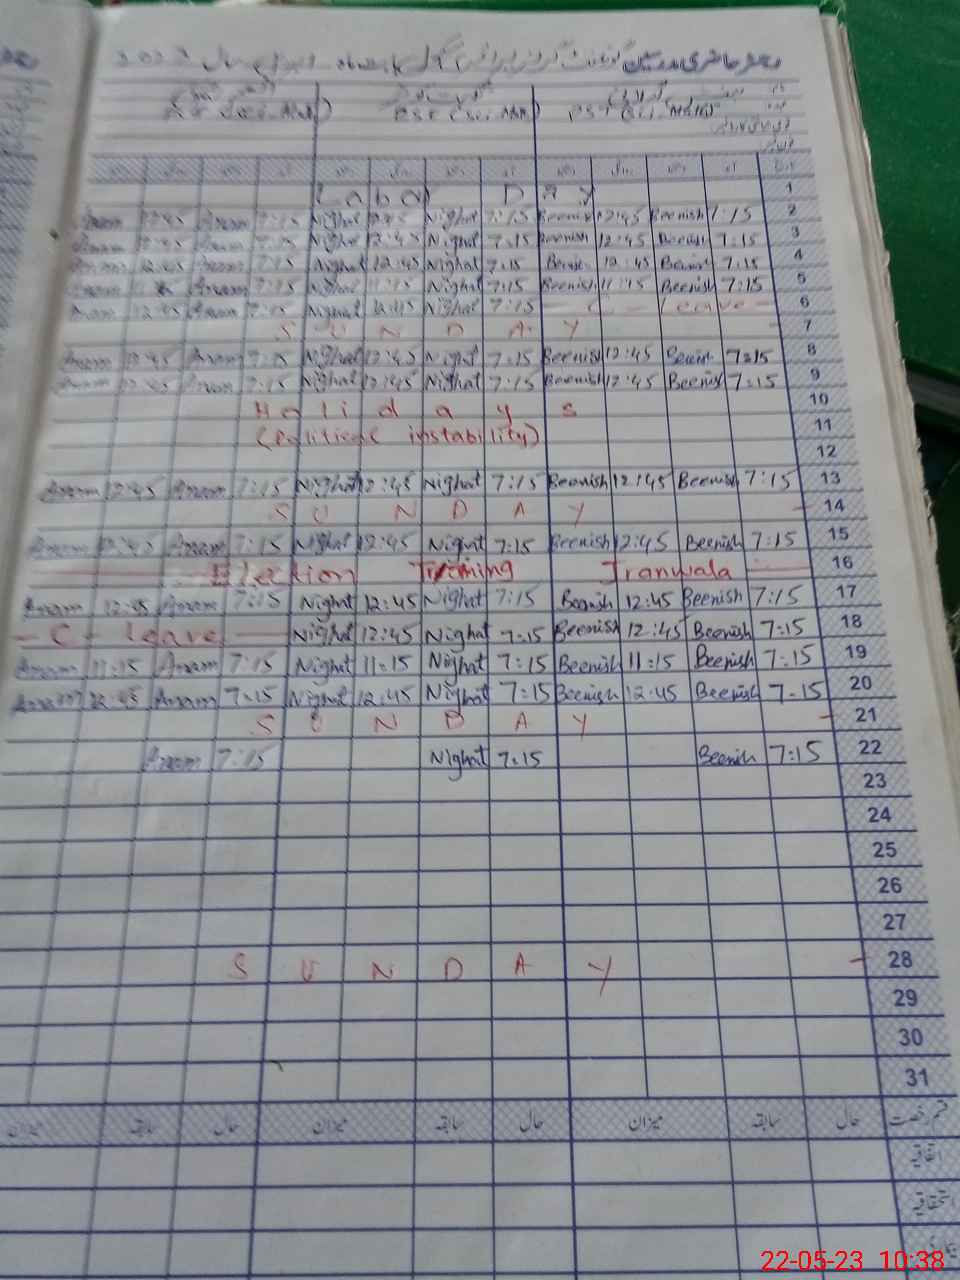 دفتر حاضری مدرسین
PST (Sci. Math)
Labour Day 1
Anam 12:45 Anam 7:15 Nighat 12:45 Nighat 7:15 Beenish 12:45 Beenish 7:15 2
Anam 12:45 Anam 7:15 Nighat 12:45 Nighat 7:15 Beenish 12:45 Beenish 7:15 3
Anam 12:45 Anam 7:15 Nighat 12:45 Nighat 7:15 Beenish 12:45 Beenish 7:15 4
Anam Anam 7:15 Nighat 11:15 Nighat 7:15 Beenish 11:15 Beenish 7:15 5
Anam 12:45 Anam 7:15 Nighat 12:45 Nighat 7:15 – C – leave – 6
S U N D A Y 7
Anam 12:45 Anam 7:15 Nighat 12:45 Nighat 7:15 Beenish 12:45 Beenish 7:15 8
Anam 12:45 Anam 7:15 Nighat 12:45 Nighat 7:15 Beenish 12:45 Beenish 7:15 9
H o l i d a y s 10
(Political instability) 11
12
Anam 12:45 Anam 7:15 Nighat 12:45 Nighat 7:15 Beenish 12:45 Beenish 7:15 13
S U N D A Y 14
Anam 12:45 Anam 7:15 Nighat 12:45 Nighat 7:15 Beenish 12:45 Beenish 7:15 15
Election Training Jranwala 16
Anam 12:45 Anam 7:15 Nighat 12:45 Nighat 7:15 Beenish 12:45 Beenish 7:15 17
– C – leave – Nighat 12:45 Nighat 7:15 Beenish 12:45 Beenish 7:15 18
Anam 11:15 Anam 7:15 Nighat 11:15 Nighat 7:15 Beenish 11:15 Beenish 7:15 19
Anam 12:45 Anam 7:15 Nighat 12:45 Nighat 7:15 Beenish 12:45 Beenish 7:15 20
S U N D A Y 21
Anam 7:15 Nighat 7:15 Beenish 7:15 22
23
24
25
26
27
S U N D A Y 28
29
30
31
قسم رخصت حال سابقہ میزان حال سابقہ میزان حال سابقہ میزان
اتفاقیہ
استحقاقیہ
22-05-23 10:38